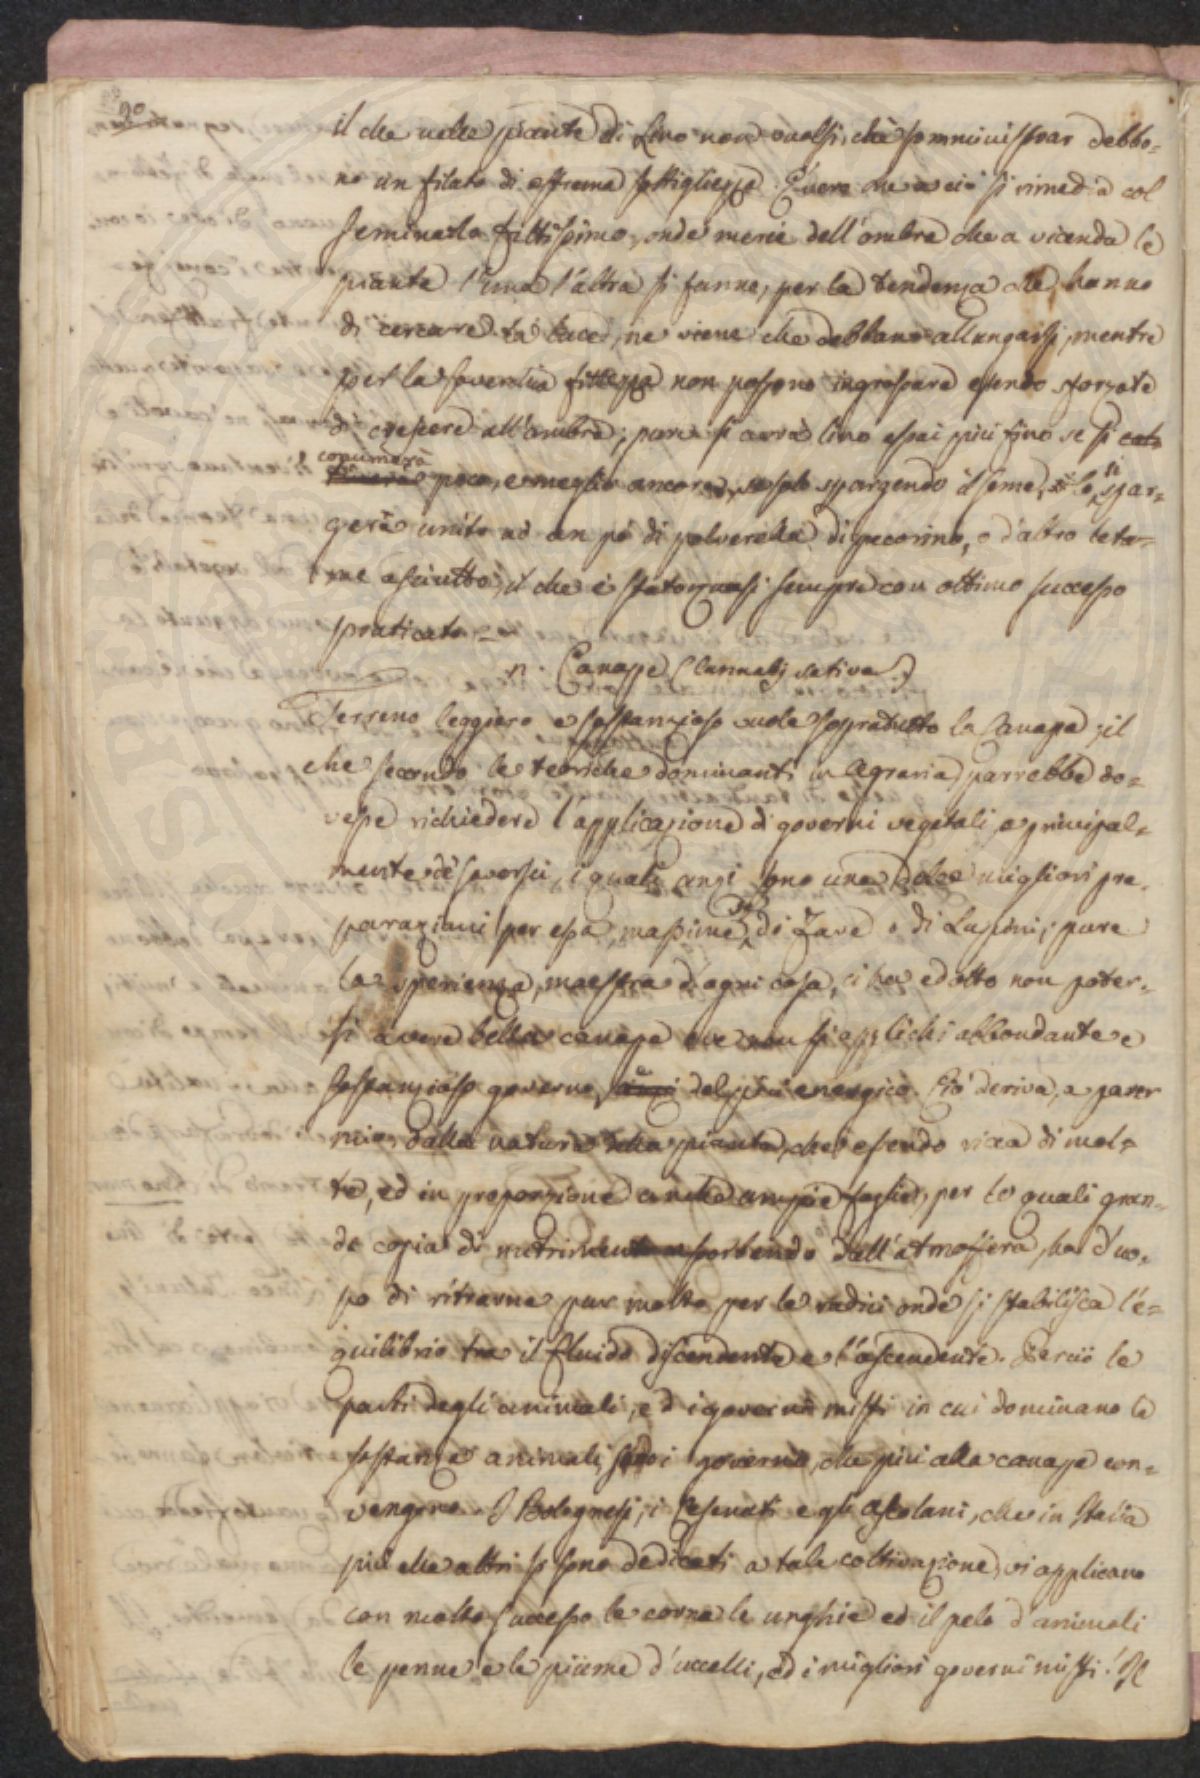 90
il che nelle piante di Lino non vuolsi, chè somministrar debbo=
no un filato di estrema sottigliezza. È vero che a ciò si rimedia col
seminarlo fittissimo, onde mercè dell'ombra che a vicenda le
piante l'una l'altra si fanno, per la tendenza che hanno
di cercare la luce, ne viene che debbano allungarsi, mentre
per la soverchia fittezza non possono ingrossare essendo sforzate
di crescere all'ombra; pure si avrà lino assai più fino se si
concimerà
poco, e meglio ancora, se solo spargendo il seme, lo si spar=
gerà unito ad un pò di polverella di pecorino, o d'altro leta=
me asciutto, il che è stato quasi sempre con ottimo successo
praticato. =
n. Canappe (Cannabis sativa.)
Terreno leggiero e sostanzioso vuole sopratutto la Canapa; il
che secondo le teoriche dominanti in Agraria parrebbe do=
vesse richiedere l'applicazione di governi vegetali, e principal=
mente de' soversci, i quali anzi sono una delle migliori pre=
parazioni per essa, massime di Fave o di Lupini; pure
la sperienza, maestra d'ogni cosa, ci ha edotto non poter=
si avere bella canapa ove non si applichi abbondante e
sostanzioso governo, e del più energico. Ciò deriva, a parer
mio, dalla natura della pianta, che essendo ricca di mol=
te, ed in proporzione anche ampie foglie, per le quali gran=
de copia di nutrimento assorbendo dall'atmosfera, ha d'uo=
po di ritrarne pur molto per le radici onde si stabilisca l'e=
quilibrio tra il fluido discendente e l'ascendente. Perciò le
parti degli animali, ed i governi misti in cui dominano le
sostanze animali, sono i governi, che più alla canapa con=
vengono. I Bolognesi, i Cesenati e gli Ascolani, che in Italia
più che altri si sono dedicati a tale coltivazione, vi applicano
con molto successo le corna le unghie ed il pelo d'animali
le penne e le piume d'uccelli, ed i migliori governi misti. Il